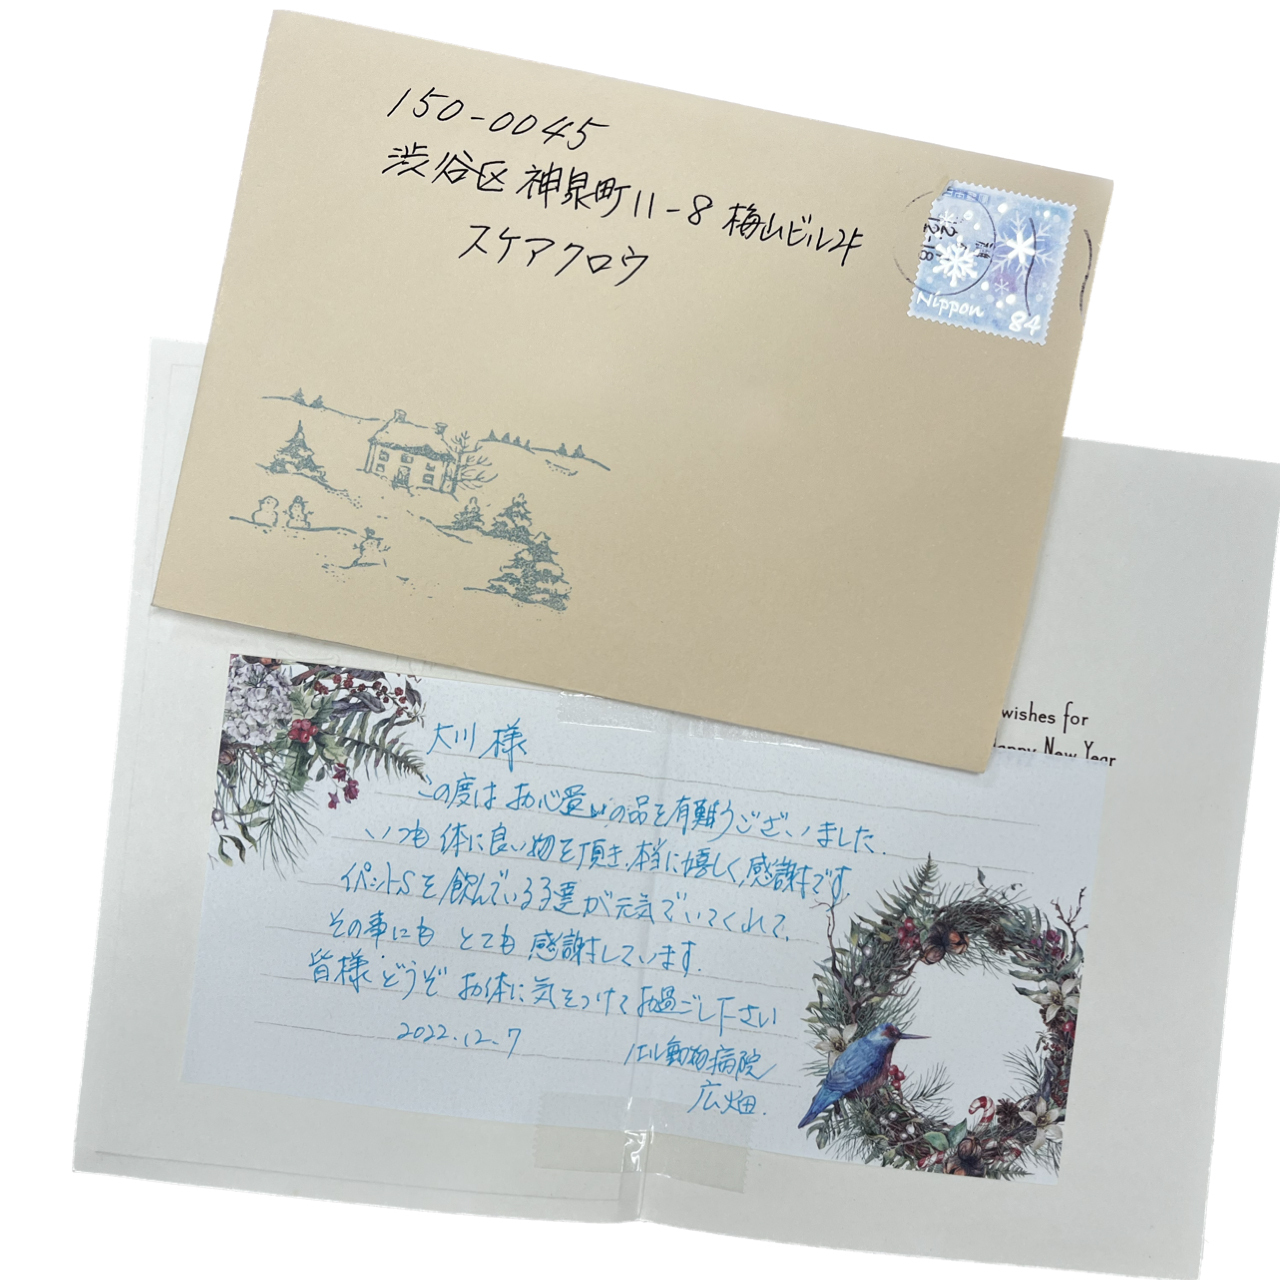 150-0045
渋谷区神泉町11-8梅山ビル2F
スケアクロウ
12.18
Nippon
84
wishes for
Happy New Year
大川様
この度はお心遣いの品を有難うございました.
いつも体に良い物を頂き、本当に嬉しく、感謝です.
を飲んでいる子達が元気でいてくれて、
その事にもとても感謝しています.
皆様どうぞお体に気をつけてお過ごし下さい
2022.12.7
動物病院
広畑.